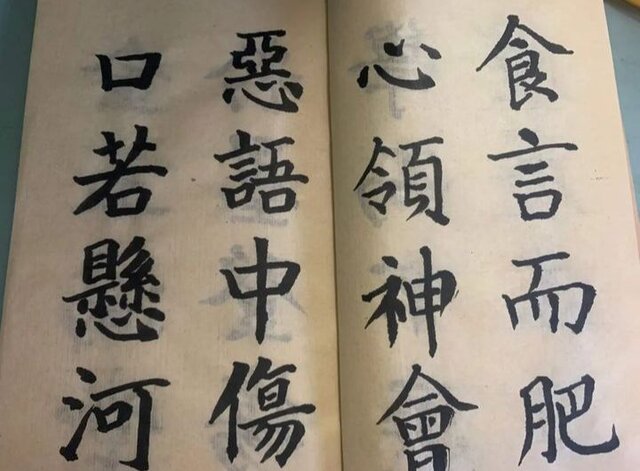 食言而肥
心領神會
惡語中傷
口若懸河